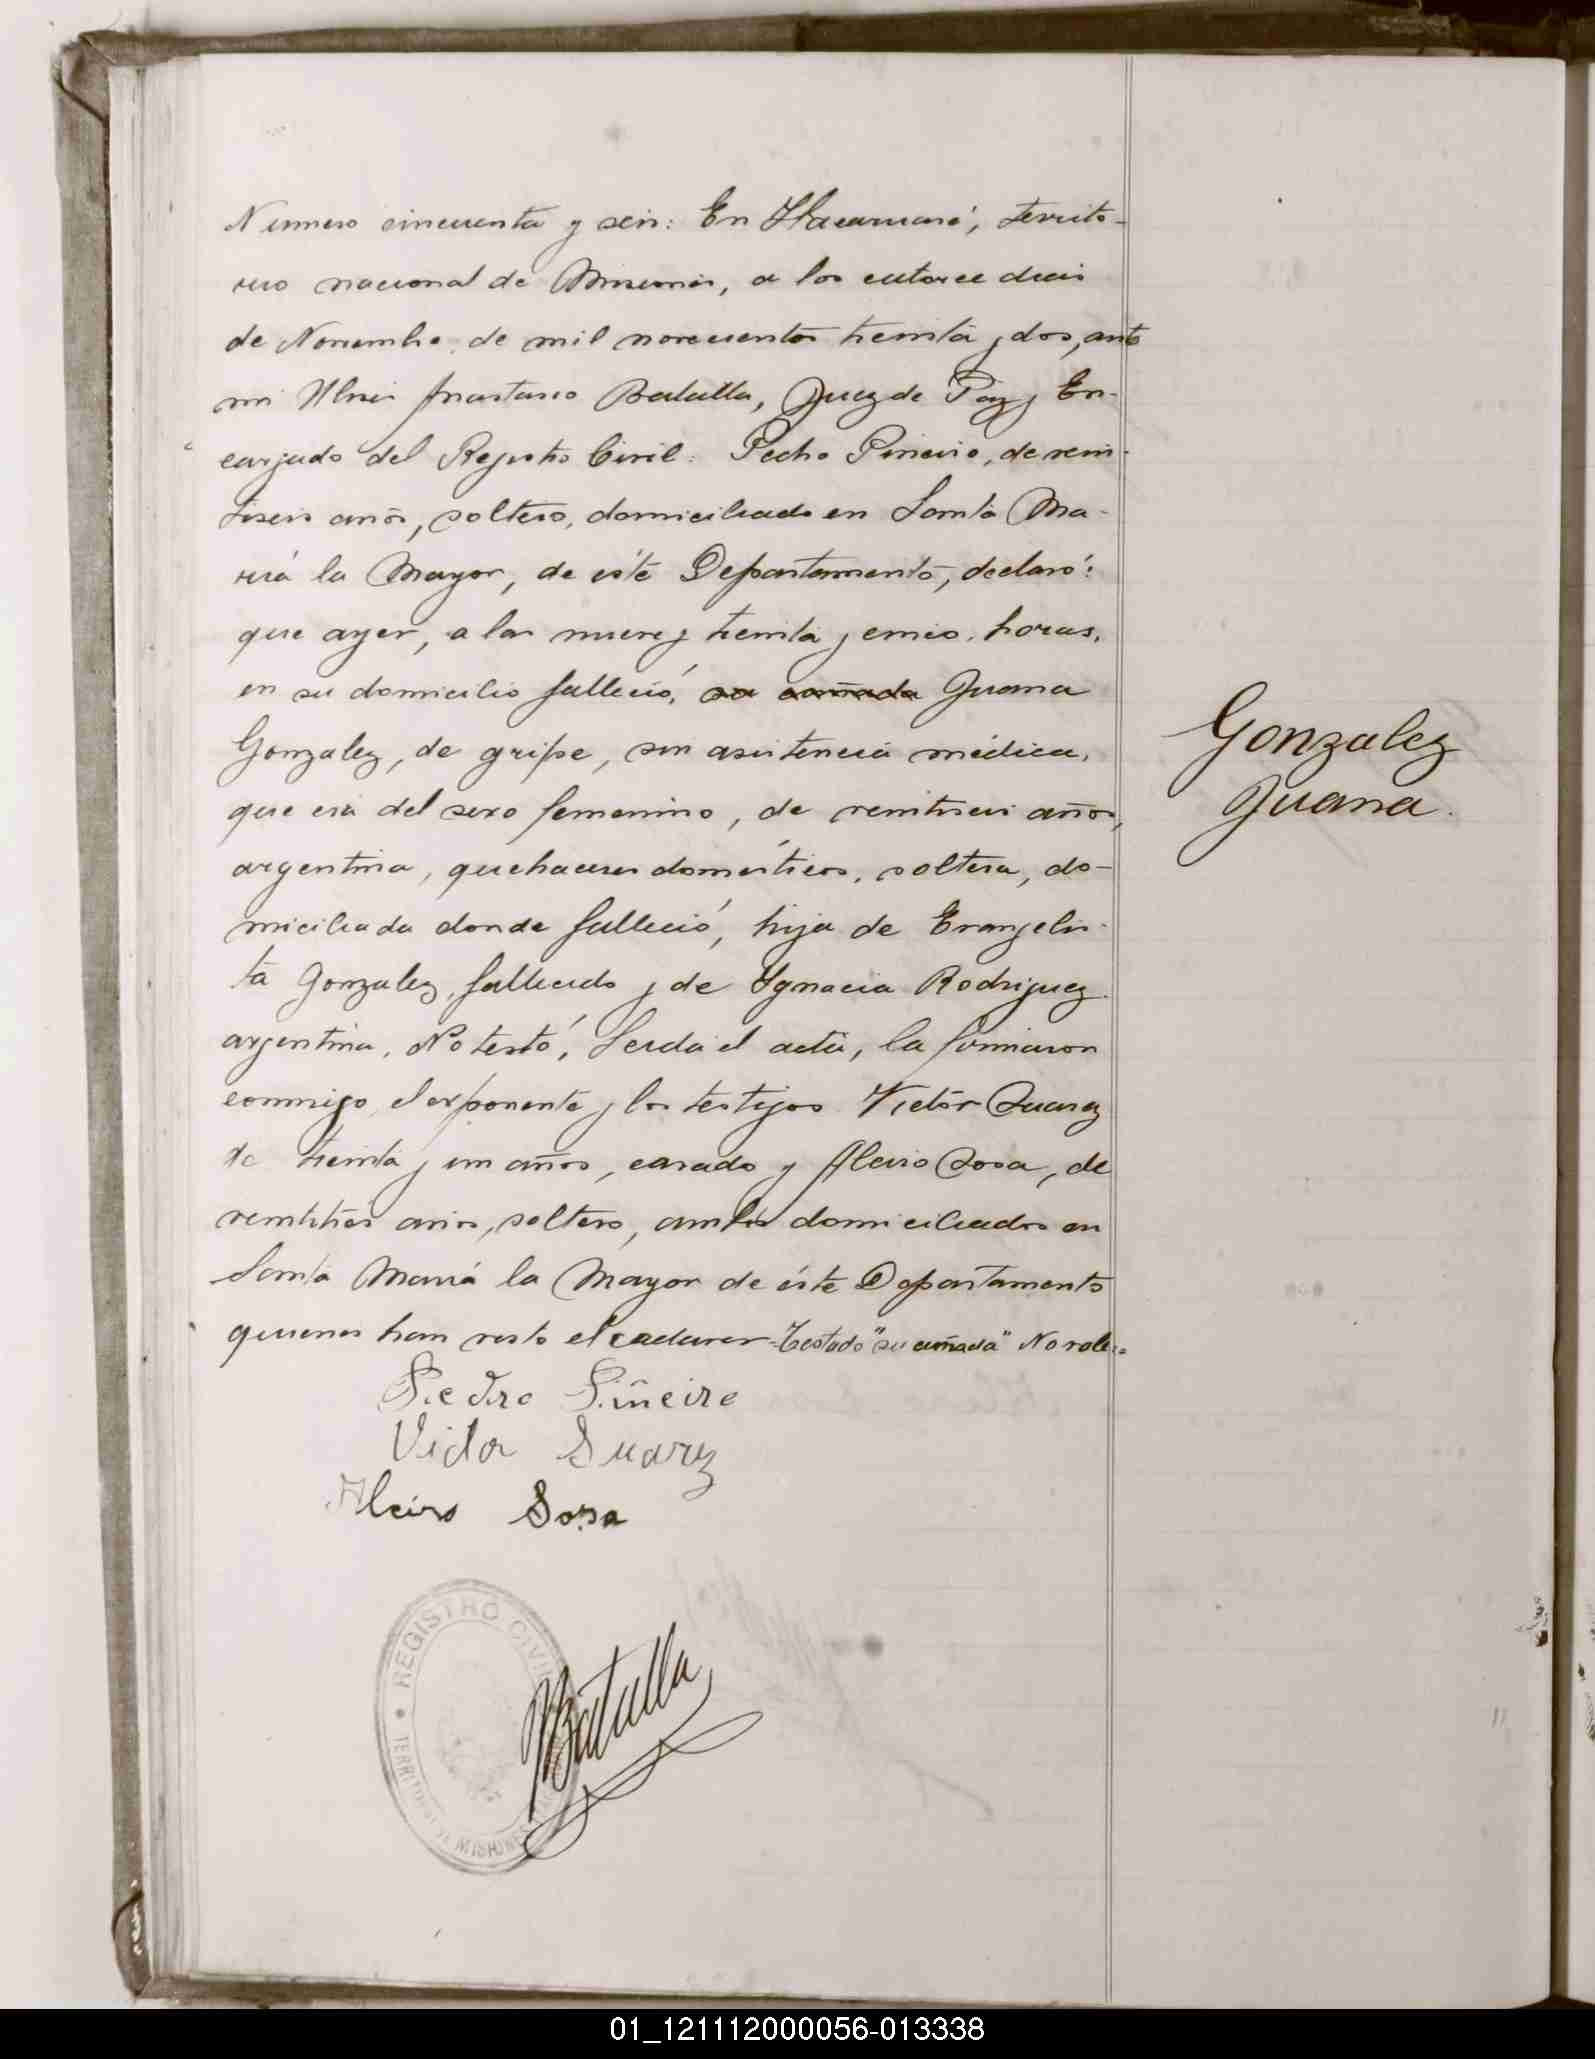 Número cincuenta y seis: En Itacaruaré, territo-
rio nacional de Misiones, a los catorce dias
de Noviembre de mil novecientos treinta y dos, ante
mi Ulises Anastasio Batalla, Juez de Paz y En-
cargado del Registro Civil: Pedro Piñeiro, de vein-
tiseis años, soltero, domiciliado en Santa Ma-
riá la Mayor, de éste Departamento, declaró:
que ayer, a las nueve y treinta y cinco horas,
en su domicilio falleció, su cuñada Juana
Gonzalez, de gripe, sin asistencia médica,
que era del sexo femenino, de veintiseis años,
argentina, quehaceres domésticos, soltera, do-
miciliada donde falleció, hija de Evangelis-
ta Gonzalez, fallecido y de Ignacia Rodriguez
argentina. No testó. Leida el acta, la firmaron
conmigo, el exponente y los testigos Victor Suarez
de treinta y un años, casado y Alciro Sosa, de
veintitrés años, soltero, ambos domiciliados en
Santa Mariá la Mayor de éste Departamento
quienes han visto el cadaver.-Testado "su cuñada" No vale.=
Pedro Piñeiro
Victor Suarez
Alciro Sosa
Batalla
REGISTRO CIVIL
TERRITORIO DE MISIONES
Gonzalez
Juana.
01_121112000056-013338